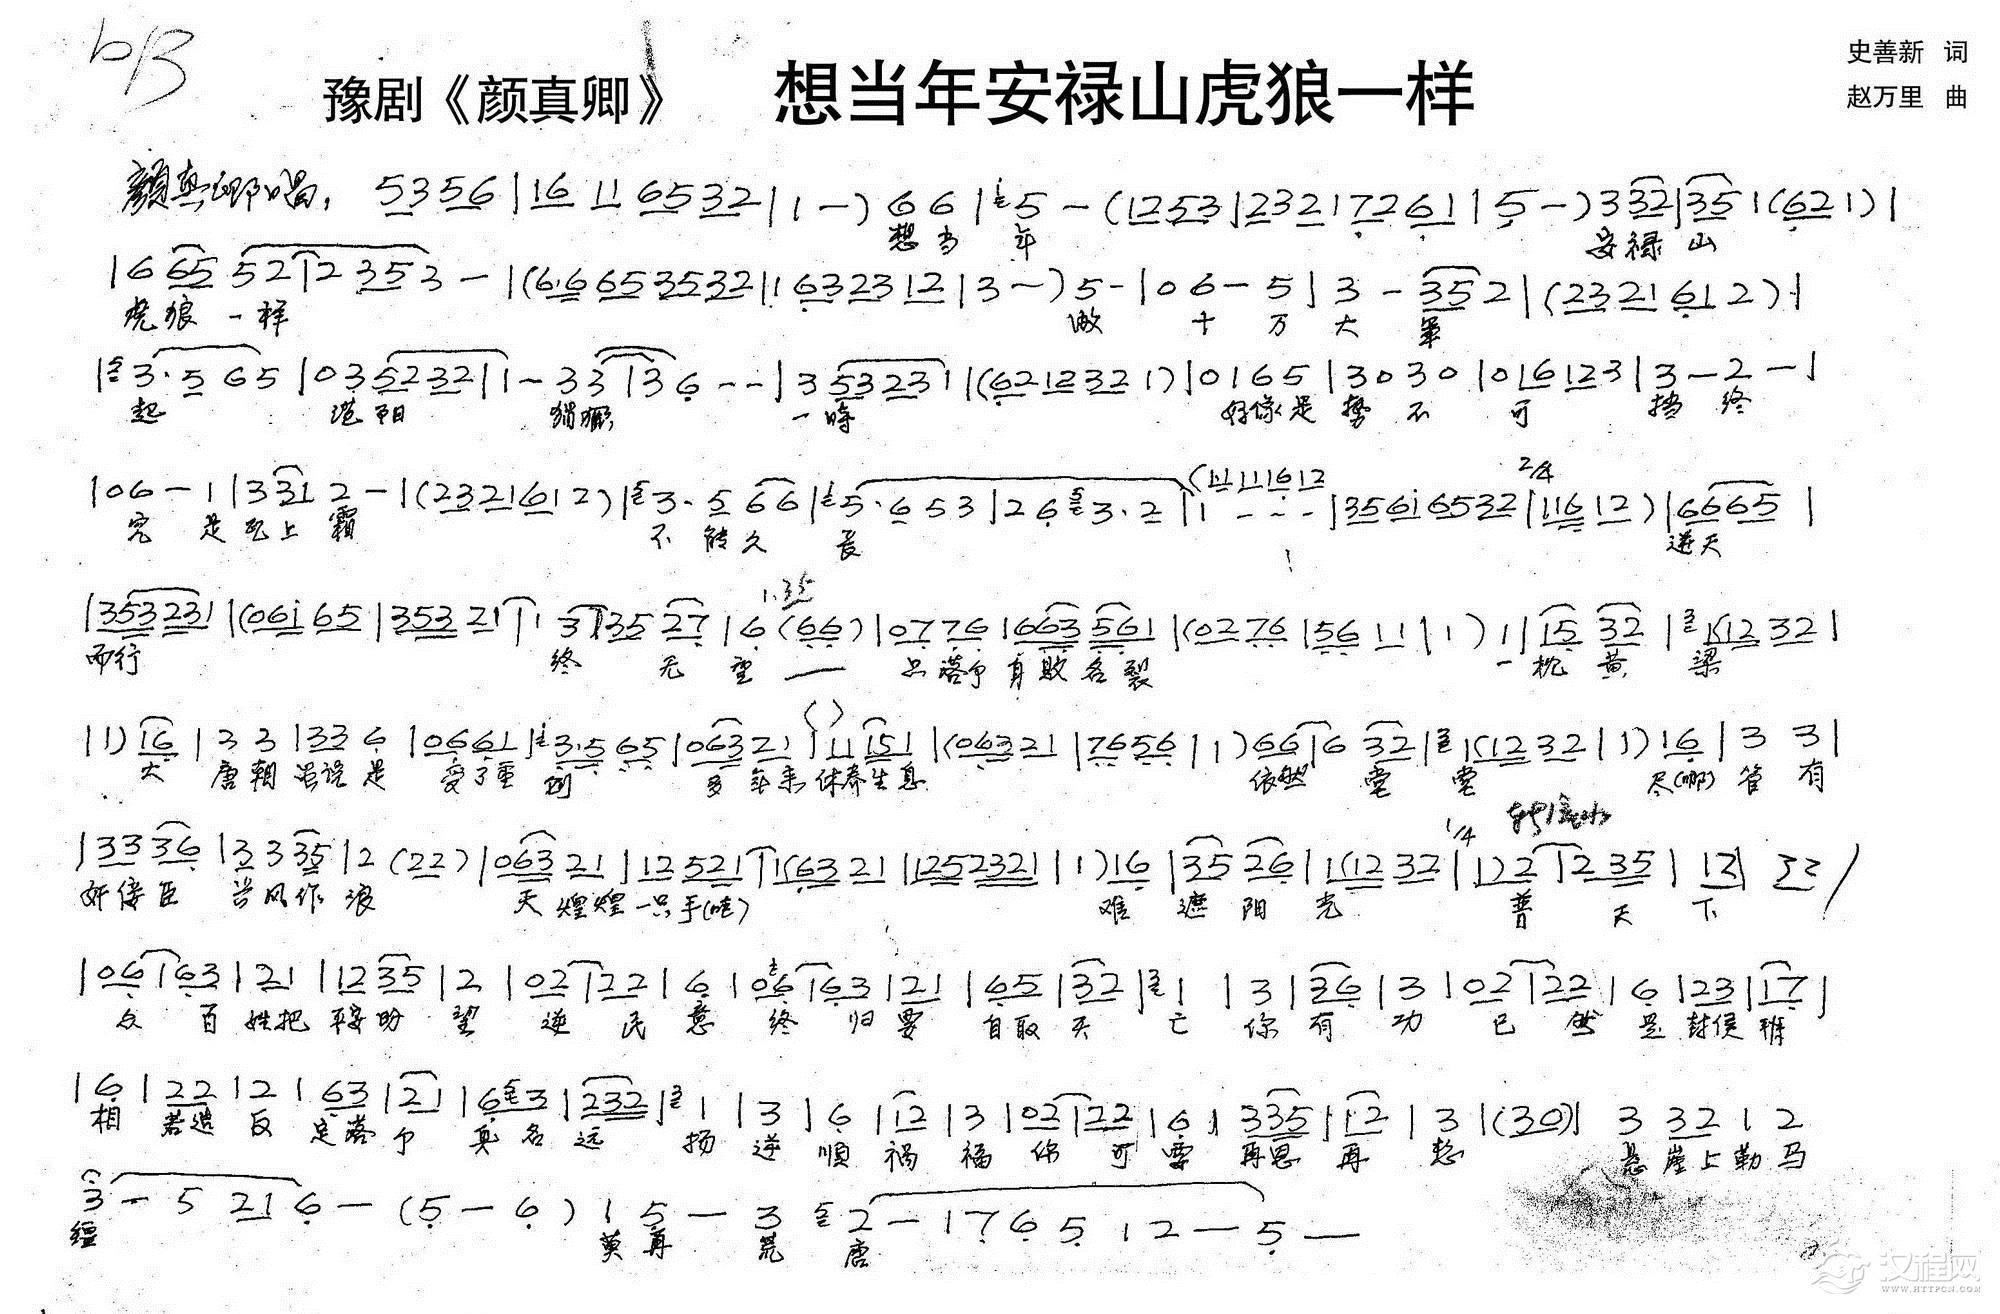 bB
史善新 词
豫剧《颜真卿》 想当年安禄山虎狼一样
赵万里 曲
颜真卿唱：5356|16 11 6532|1 -) 66|5 -(1253|2321 7261|5 -) 332|351(621)|
想当年 安禄山
|6 65 5212 353 -|(6·6 653532|1 632312|3 -) 5-|06-5|3-352|(2321612)|
虎狼一样 激十万大军
|3·565|035232|1-33136--|353231|(6212321)|0165|3030|016123|3-2-|
起范阳 猖獗一时 好像是势不可挡 终
|06-1|3312-|(2321612)|3·566|5·653|263·2|1---|3561 6532|11612)|6665|
(11 11 6 12
2/4
究是瓦上霜 不能久长 逆天
|353231|(061 65|353 21|1 3|35 27|6(66)|07 76|663 561|(02 76|56 11|1) 1|15 32|1(12 32|
而行 终无望 只落个身败名裂 一枕黄梁
|1) 16|33|336|0661|3·5 65|063 21|11 151|(063 21|7656|1) 66|6 32|1(12 32|1) 16|3 3|
大唐朝虽说是受了重创 多年来休养生息 依然堂堂 尽(哪)管有
|33 36|33 35|2 (22)|063 21|12 521|1(63 21|1252321|1) 16|35 26|1(12 32|122|12 35|12|
1/4
奸佞臣兴风作浪 天煌煌一只手(哇) 难遮阳光 普天下
|06|63|21|12 35|2|02|22|6|06|63|21|65|32|1|3|36|3|02|22|6|23|17|
众百姓把平安盼望 逆民意终归要自取灭亡 你有功已然是封侯拜
|6|22|2|63|21|63|232|1|3|6|12|3|02|22|6|335|12|3|(30)|3 32 1 2
相 若造反定落个臭名远扬 逆顺祸福你可要再思再想 悬崖上勒马
3 - 5 21 6 - (5 - 6) 1 5 - 3 2 - 1 7 6 5 1 2 - 5 —
缰 莫再荒唐
汉程网
WWW.HTTPCN.COM